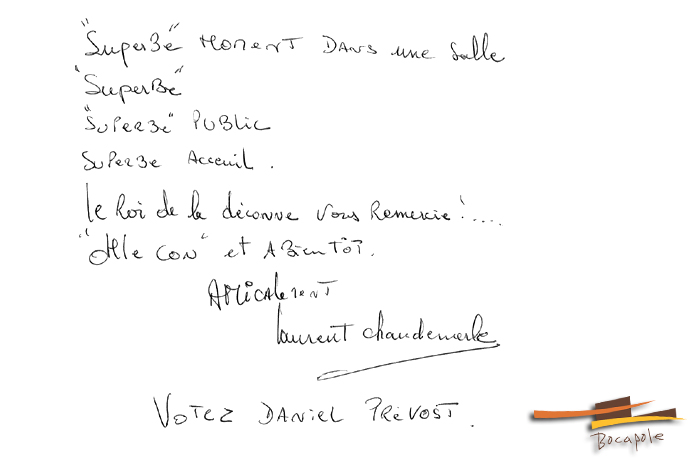 "SuperBe" MOMENT DANS une Salle
"SuperBe"
"SuPerBe" PUBLIC
SuPerBe Acceuil.
le Roi de la déconne vous Remercie !....
et ABientôT.
AMICALemenT
laurent chandemerle
VOTEZ DANIEL PRéVOST.
Bocapole